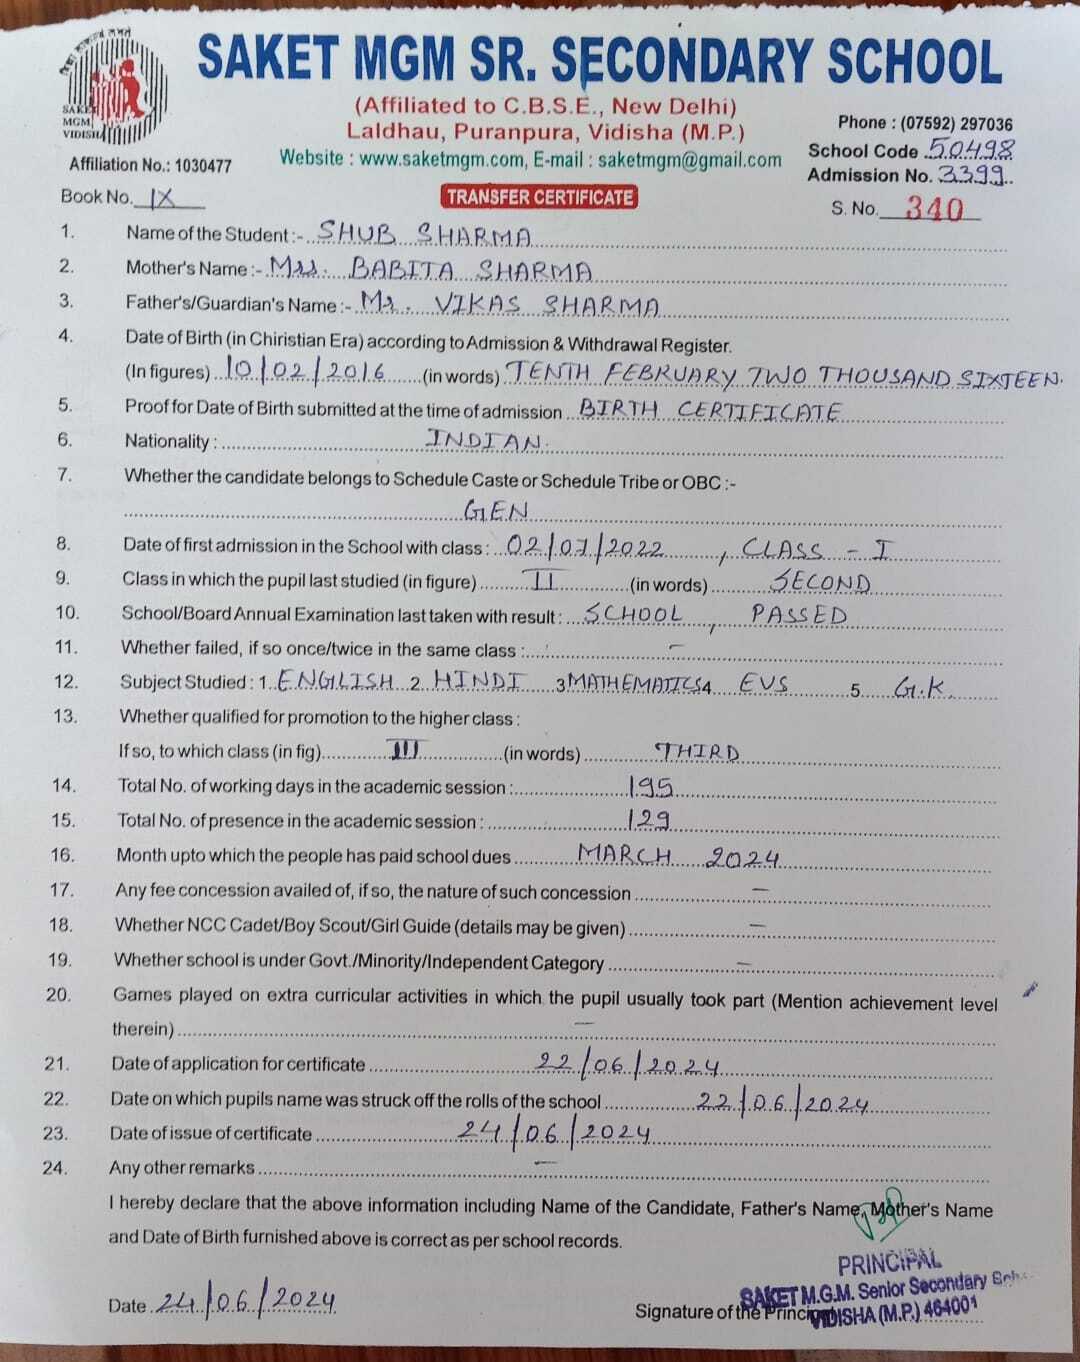 SAKET MGM SR. SECONDARY SCHOOL
(Affiliated to C.B.S.E., New Delhi)
Laldhau, Puranpura, Vidisha (M.P.)
Website : www.saketmgm.com, E-mail : saketmgm@gmail.com
SAKET
MGM,
VIDISHA
Affiliation No.: 1030477
Phone : (07592) 297036
School Code 50498
Admission No. 3399
Book No. IX
TRANSFER CERTIFICATE
S. No. 340
1. Name of the Student :- SHUB SHARMA
2. Mother's Name :- Mrs. BABITA SHARMA
3. Father's/Guardian's Name :- Mr. VIKAS SHARMA
4. Date of Birth (in Chiristian Era) according to Admission & Withdrawal Register.
(In figures) 10/02/2016 (in words) TENTH FEBRUARY TWO THOUSAND SIXTEEN.
5. Proof for Date of Birth submitted at the time of admission BIRTH CERTIFICATE
6. Nationality : INDIAN.
7. Whether the candidate belongs to Schedule Caste or Schedule Tribe or OBC :-
GEN
8. Date of first admission in the School with class : 02/07/2022, CLASS - I
9. Class in which the pupil last studied (in figure) II (in words) SECOND
10. School/Board Annual Examination last taken with result : SCHOOL, PASSED
11. Whether failed, if so once/twice in the same class : -
12. Subject Studied : 1. ENGLISH 2 HINDI 3 MATHEMATICS 4 EVS 5 G.K.
13. Whether qualified for promotion to the higher class :
If so, to which class (in fig) III (in words) THIRD
14. Total No. of working days in the academic session : 195
15. Total No. of presence in the academic session : 129
16. Month upto which the people has paid school dues MARCH 2024
17. Any fee concession availed of, if so, the nature of such concession -
18. Whether NCC Cadet/Boy Scout/Girl Guide (details may be given) -
19. Whether school is under Govt./Minority/Independent Category -
20. Games played on extra curricular activities in which the pupil usually took part (Mention achievement level
therein) -
21. Date of application for certificate 22/06/2024
22. Date on which pupils name was struck off the rolls of the school 22/06/2024
23. Date of issue of certificate 24/06/2024
24. Any other remarks -
I hereby declare that the above information including Name of the Candidate, Father's Name, Mother's Name
and Date of Birth furnished above is correct as per school records.
PRINCIPAL
SAKET M.G.M. Senior Secondary
VIDISHA (M.P.) 464001
Date 24/06/2024
Signature of the Principal